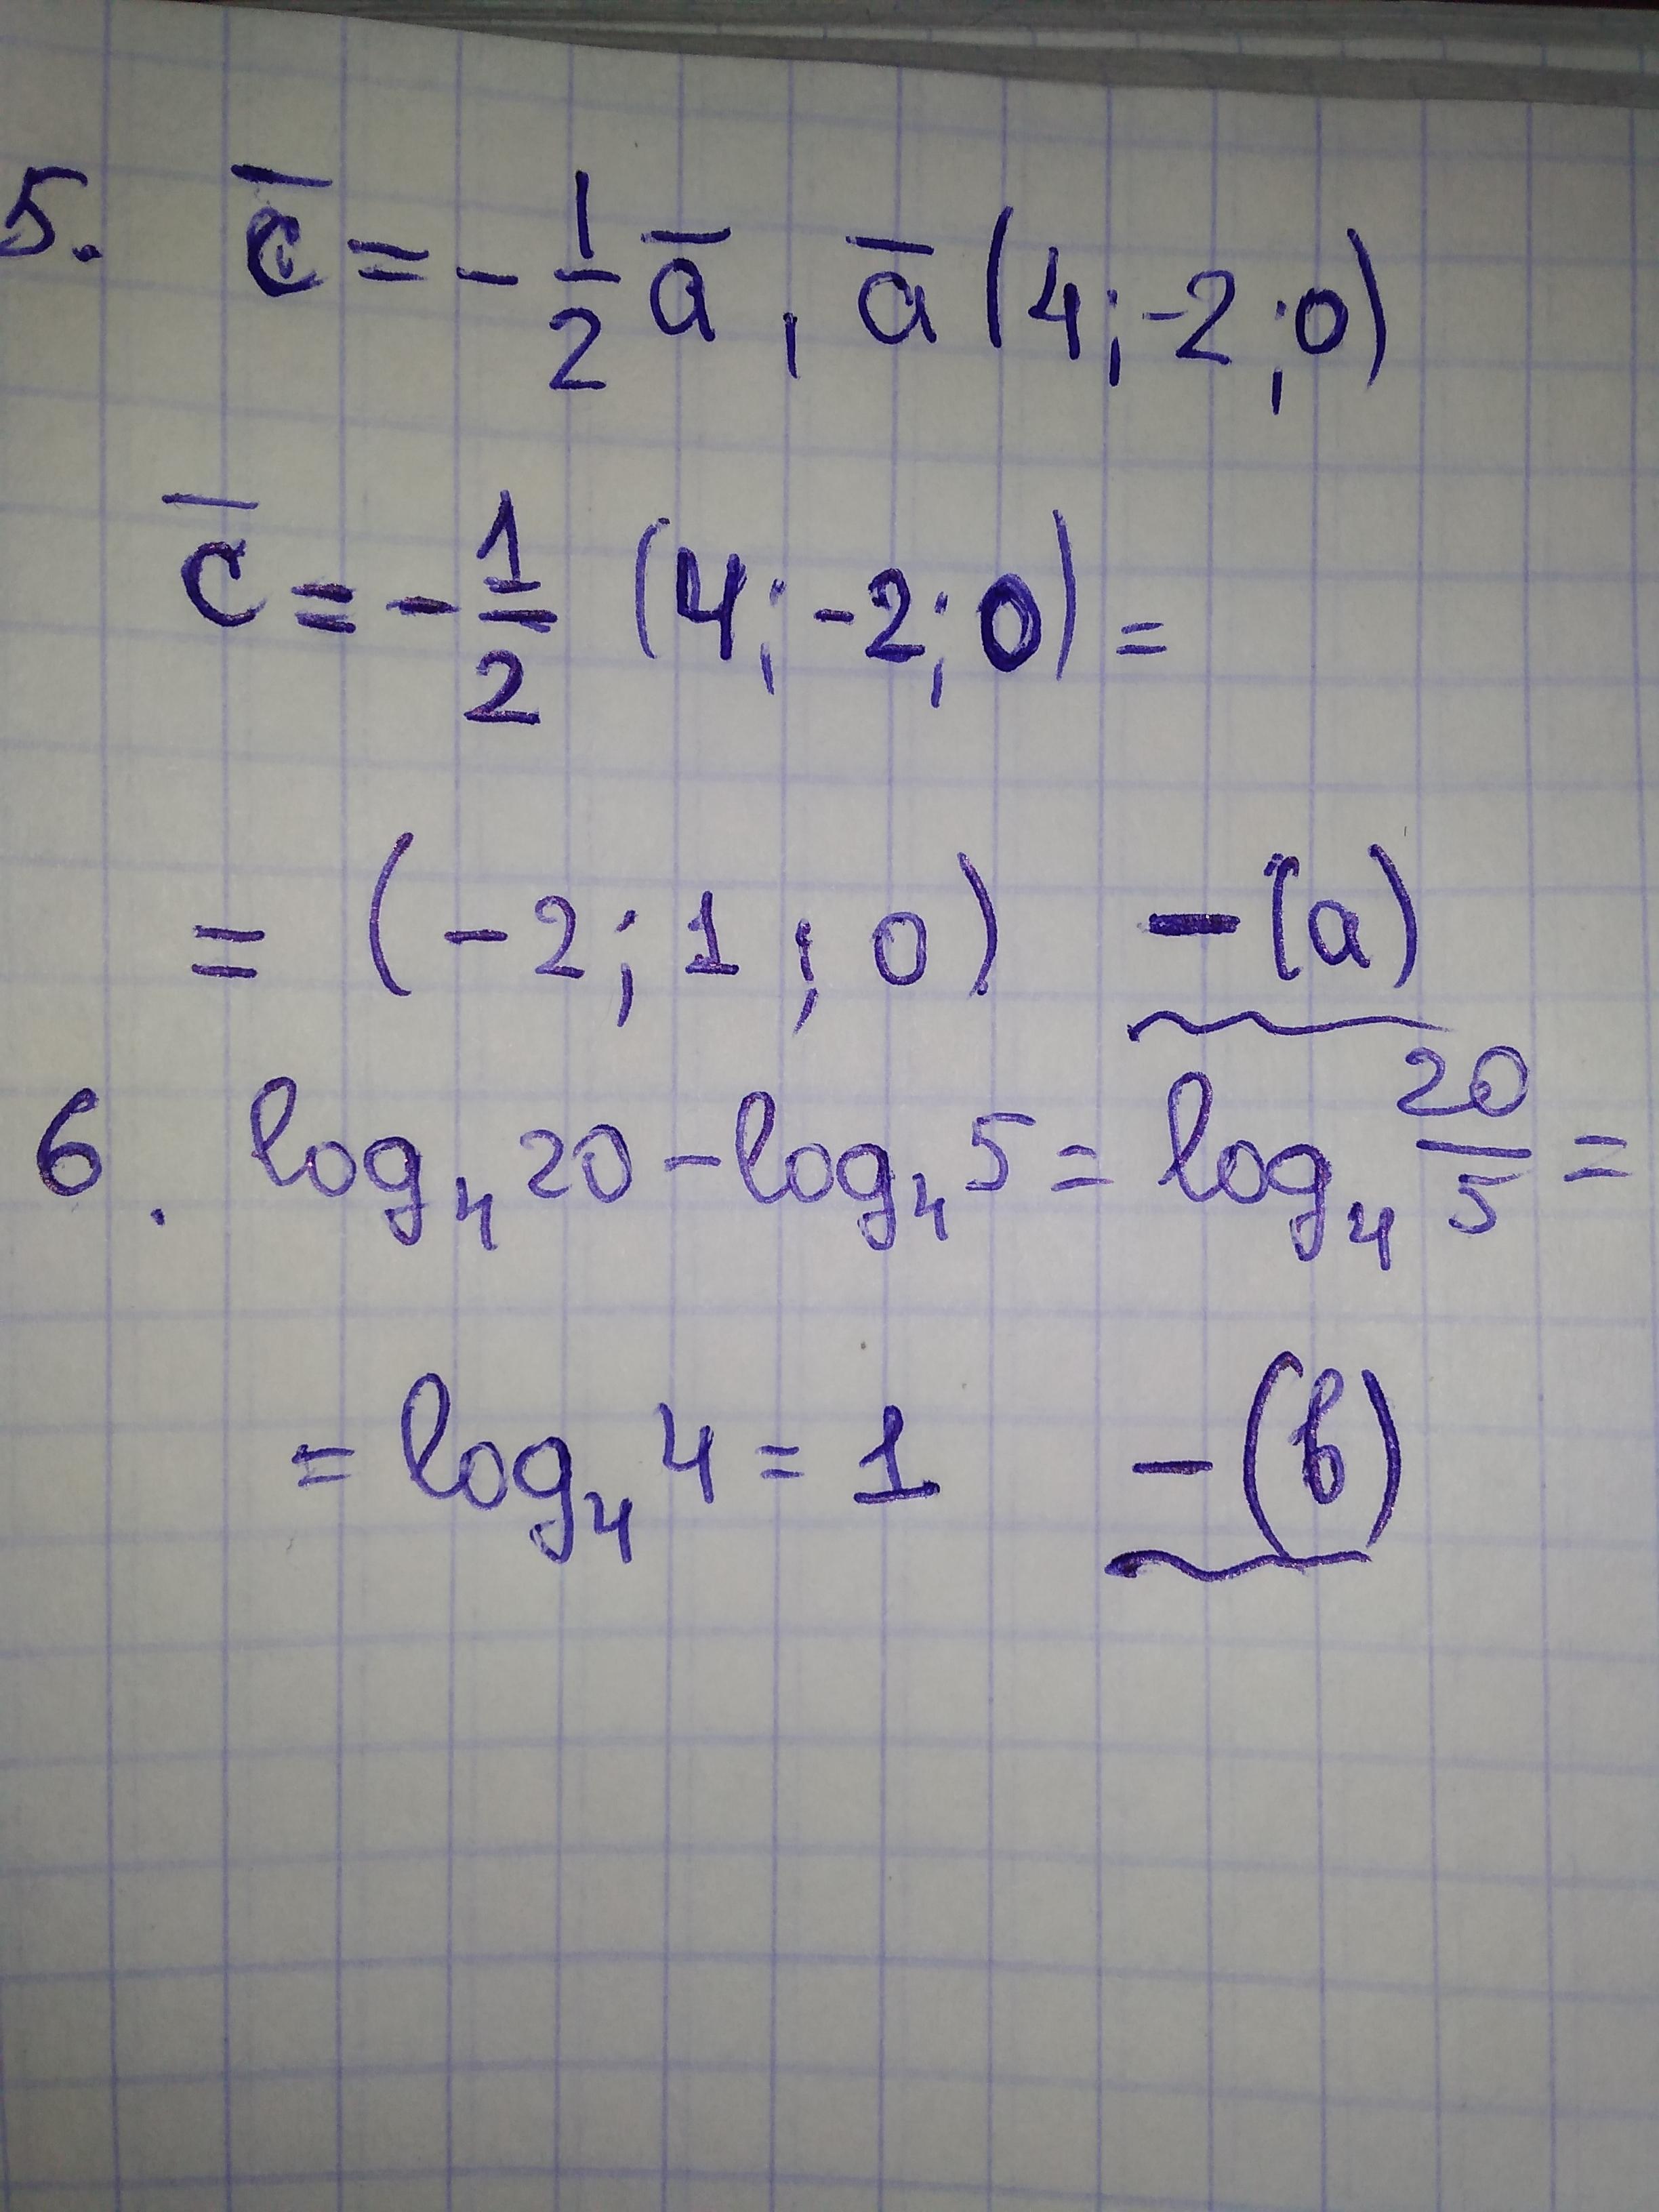 5. c̅ = -1/2 a̅, a̅ (4; -2; 0)
c̅ = -1/2 (4; -2; 0) =
= (-2; 1; 0) - (a)
6. log₄ 20 - log₄ 5 = log₄ 20/5 =
= log₄ 4 = 1 - (б)